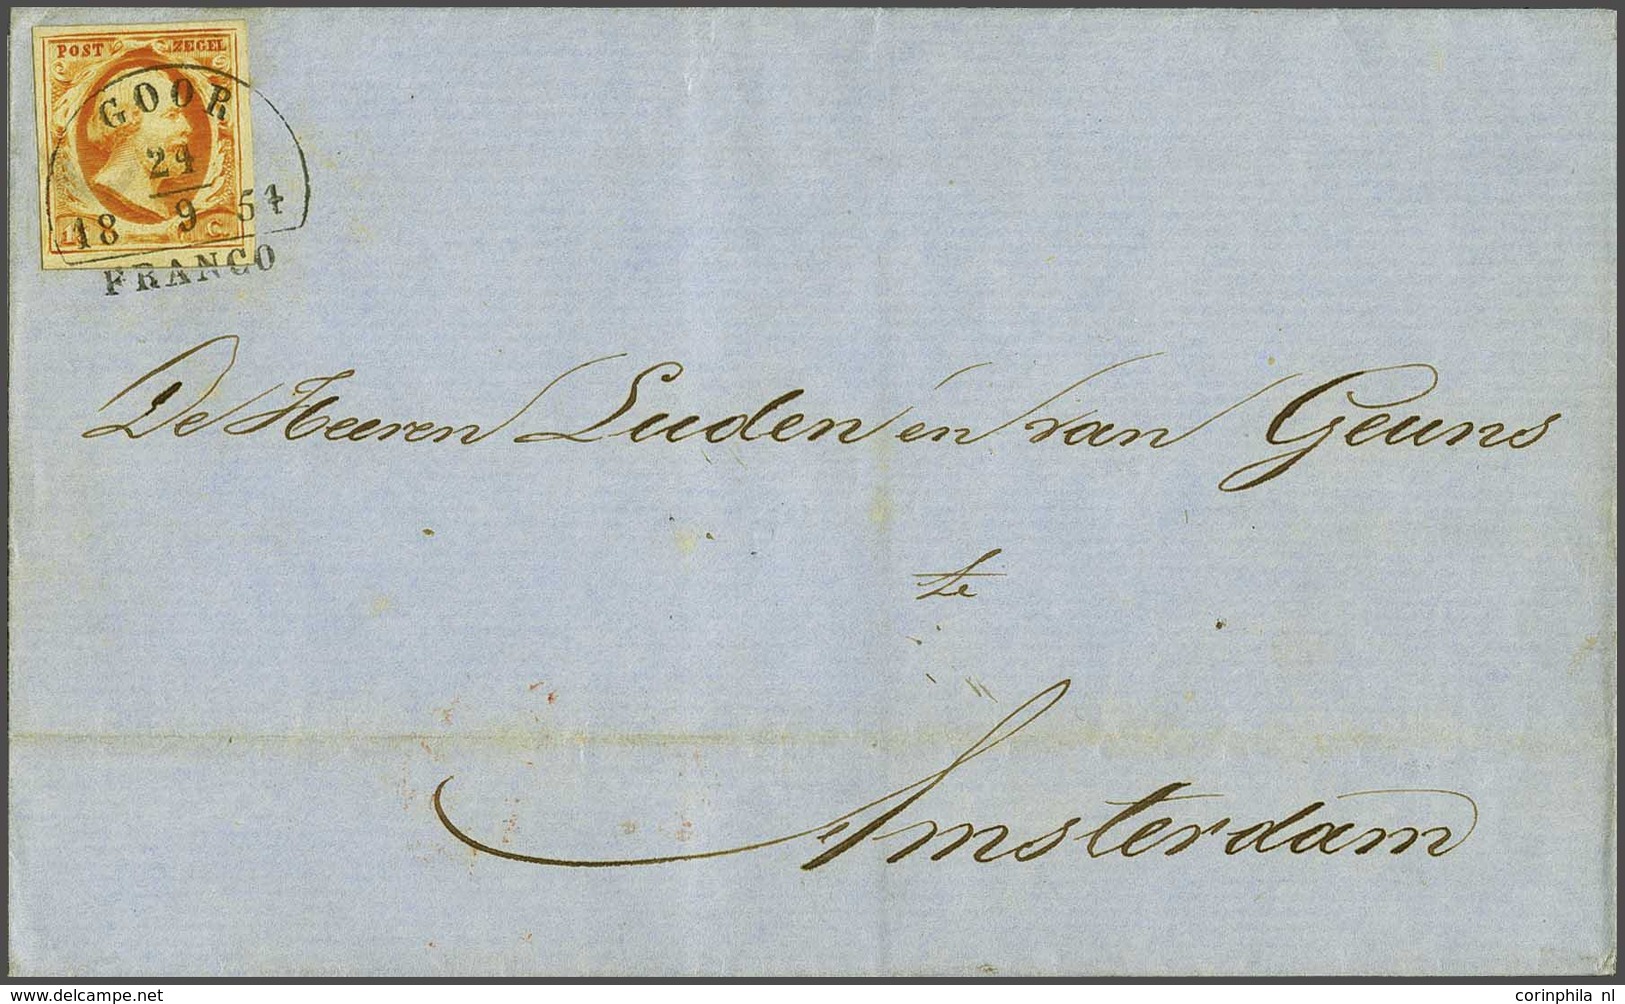 POST ZEGEL
GOOR
24
18 9 54
C.
FRANCO
De Heeren Luden en van Geuns
te
Amsterdam
www.delcampe.net
corinphila nl